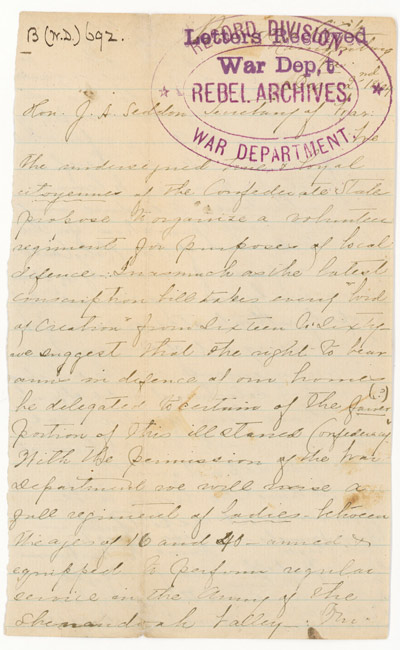 B (W.D.) 692.
RECORD DIVISION,
Letters Received
War Dep,t
REBEL ARCHIVES,
WAR DEPARTMENT.
Hon. J. A. Seddon Secretary of War.
The undersigned true & loyal
citoyennes of the Confederate State
propose to organize a volunteer
regiment for purposes of local
defence. Inasmuch as the latest
conscription bill takes every "lord
of Creation" from Sixteen to Sixty
we suggest that the right to bear
arms in defence of our homes
be delegated to certain of the fairer (?)
portion of this ill starred Confederacy
With the permission of the War
Department we will raise a
full regiment of ladies between
the ages of 16 and 40 armed &
equipped to perform regular
service in the Army of the
Shenandoah Valley.